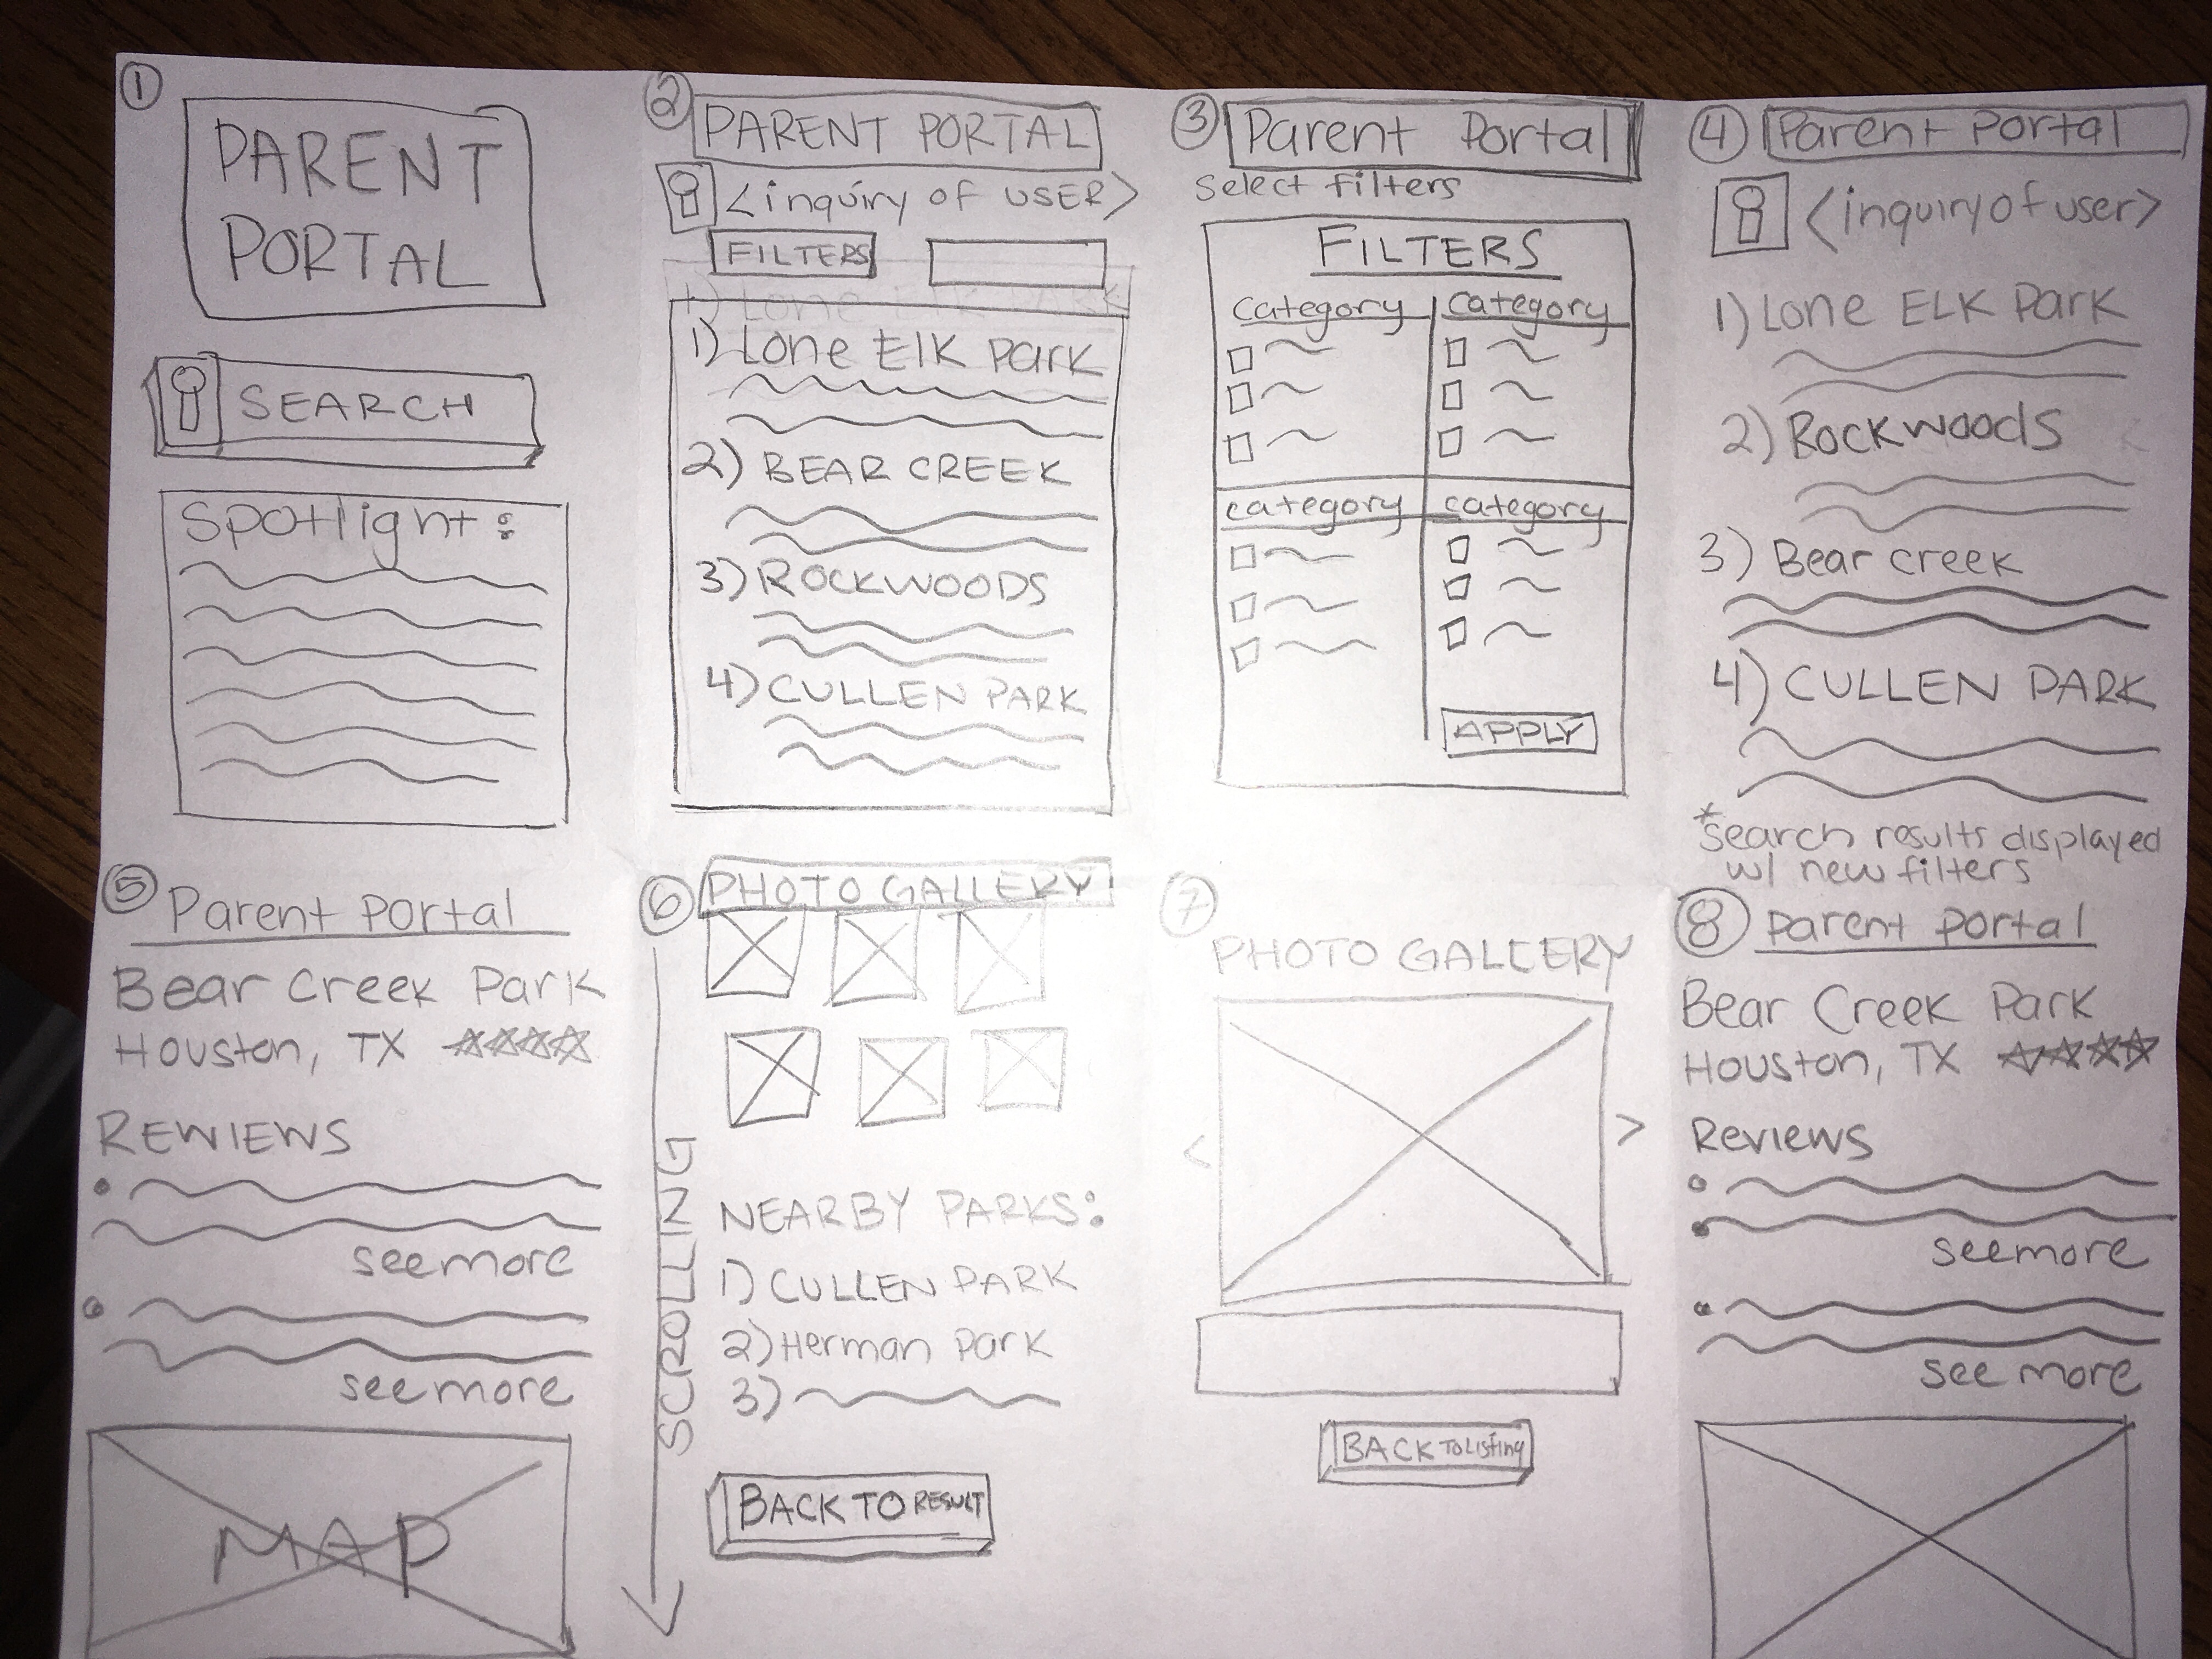 1
PARENT
PORTAL
SEARCH
Spotlight:
2
PARENT PORTAL
<inquiry of USER>
FILTERS
1) Lone Elk Park
1) Lone Elk Park
2) BEAR CREEK
3) ROCKWOODS
4) CULLEN PARK
3
Parent Portal
Select filters
FILTERS
Category Category
category category
APPLY
4
Parent Portal
<inquiry of user>
1) Lone ELK Park
2) Rockwoods
3) Bear creek
4) CULLEN PARK
*Search results displayed
w/ new filters
5
Parent Portal
Bear Creek Park
Houston, TX
REWIEWS
see more
see more
MAP
6
PHOTO GALLERY
SCROLLING
NEARBY PARKS:
1) CULLEN PARK
2) Herman Park
3)
BACK TO RESULT
7
PHOTO GALLERY
< >
BACK To Listing
8
parent portal
Bear Creek Park
Houston, TX
Reviews
see more
see more